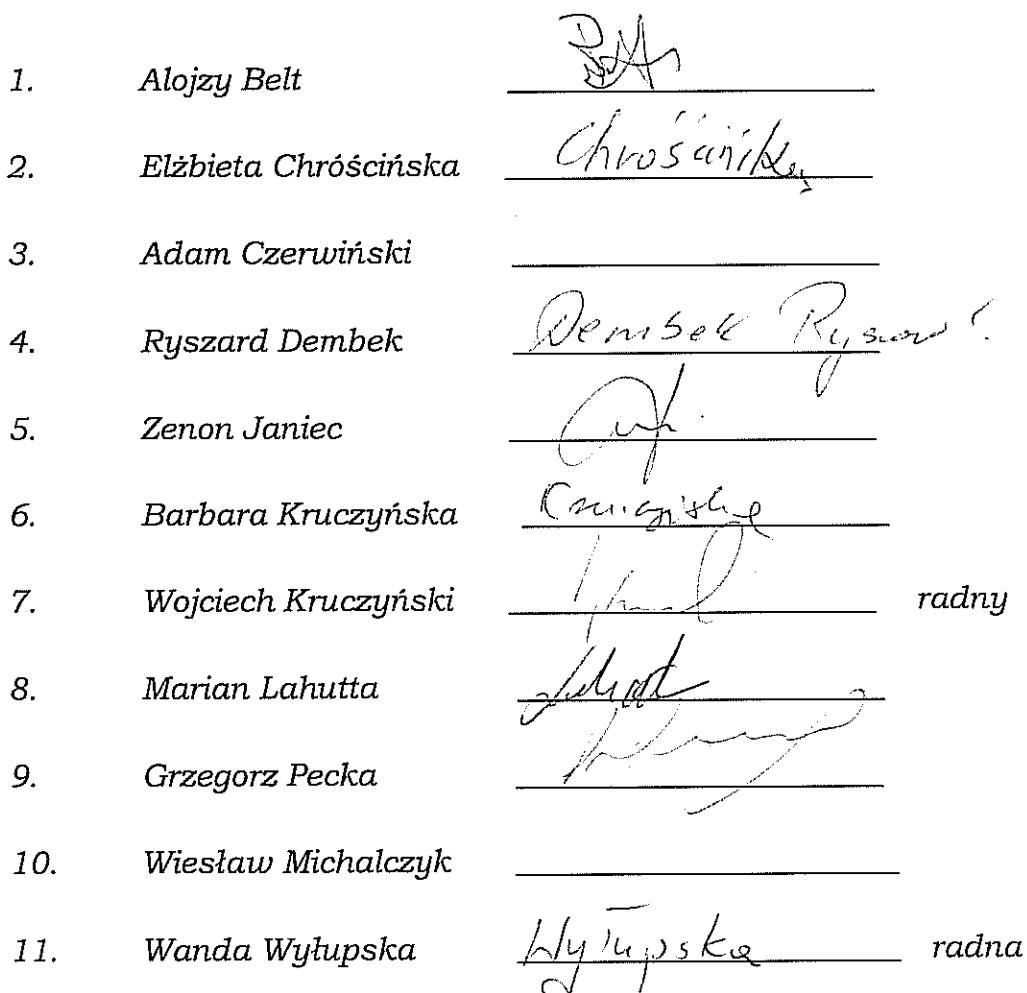 1. Alojzy Belt
2. Elżbieta Chróścińska Chróścińska
3. Adam Czerwiński
4. Ryszard Dembek Dembek Ryszard
5. Zenon Janiec
6. Barbara Kruczyńska
7. Wojciech Kruczyński radny
8. Marian Lahutta
9. Grzegorz Pecka
10. Wiesław Michalczyk
11. Wanda Wyłupska Wyłupska radna